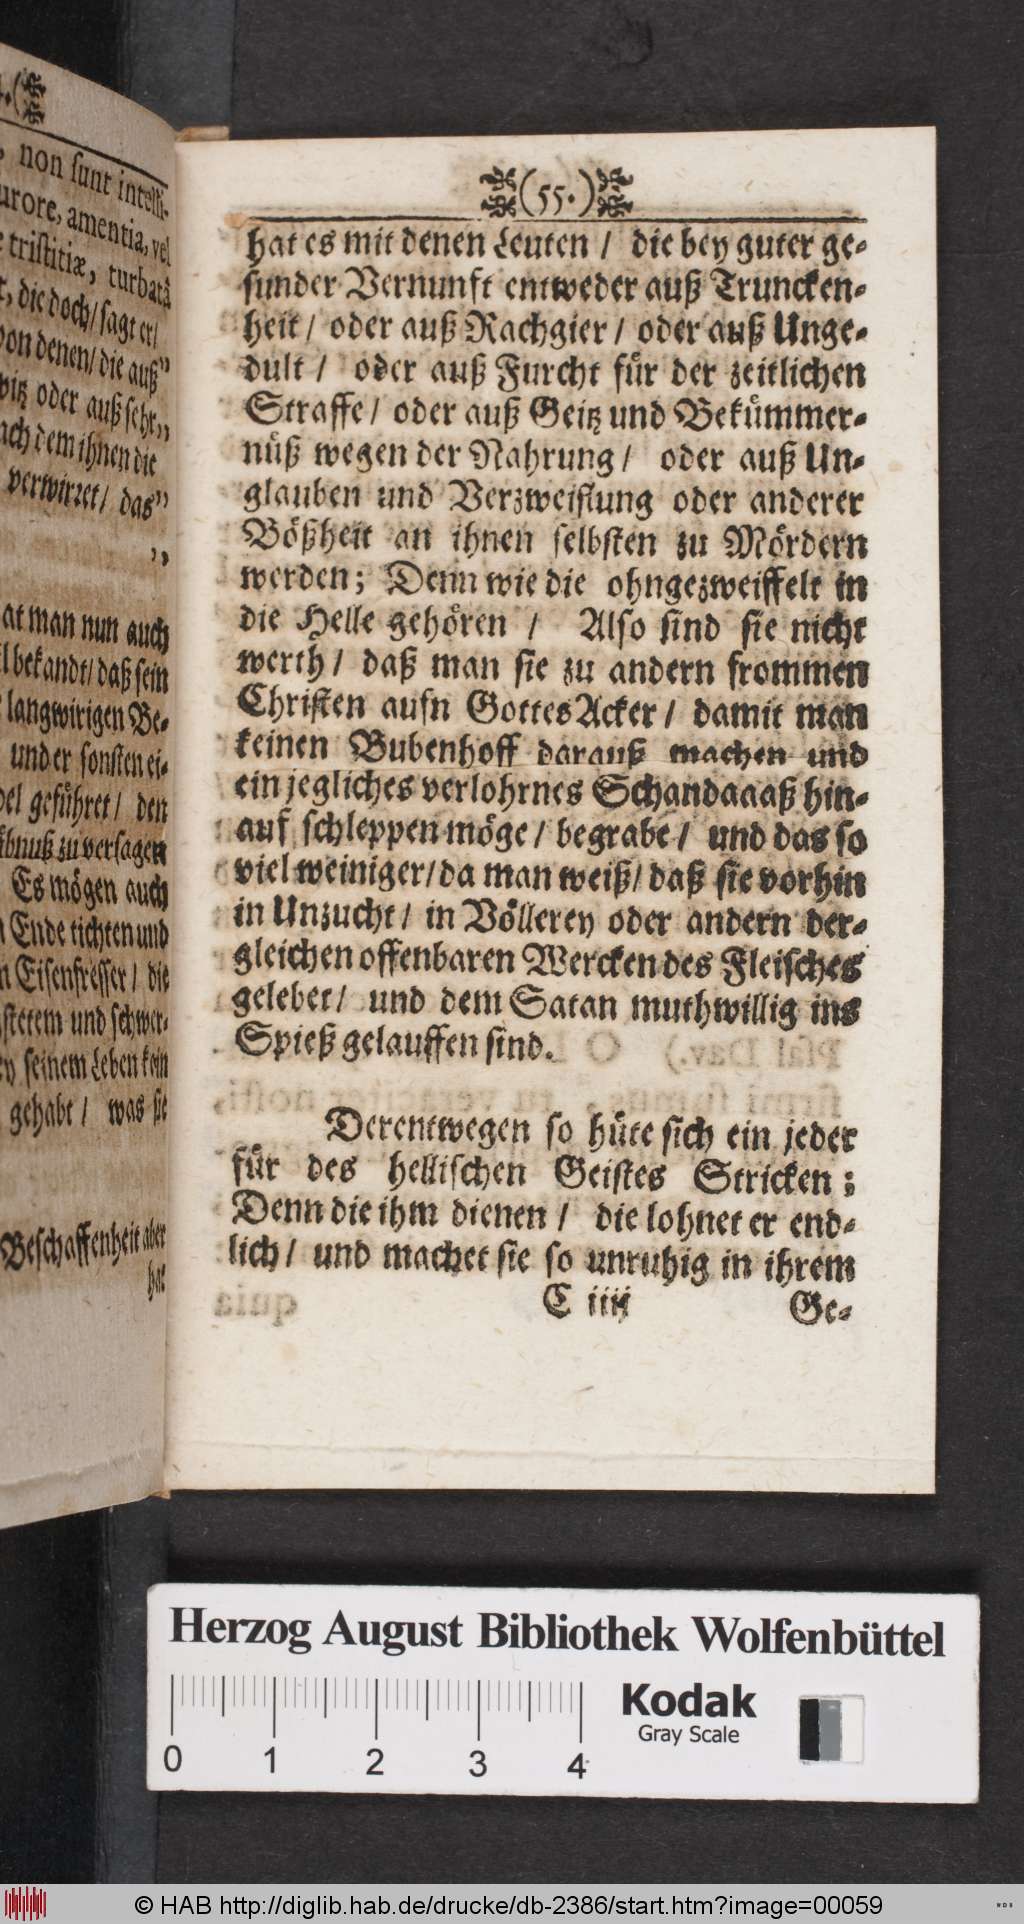 non sunt intelli-
urore, amentia, vel
tristitiæ, turbatâ
die doch/ sagt er/
von denen/ die auß"
witz oder auß sehr,,
nach dem ihnen die
verwirret/ das"
,,
at man nun auch
bekandt/ daß sein
langwirigen Be-
und er sonsten ei-
geführet/ den
bnuß zu versagen
Es mögen auch
Ende tichten und
Eisenfresser/ die
und schwer-
seinem Leben kein
gehabt/ was sie
Beschaffenheit aber
hat
(55.)
hat es mit denen Leuten / die bey guter ge-
sunder Vernunft entweder auß Truncken-
heit/ oder auß Rachgier/ oder auß Unge-
dult / oder auß Furcht für der zeitlichen
Straffe/ oder auß Geitz und Bekümmer-
nüß wegen der Nahrung/ oder auß Un-
glauben und Verzweiflung oder anderer
Bößheit an ihnen selbsten zu Mördern
werden; Denn wie die ohngezweiffelt in
die Helle gehören / Also sind sie nicht
werth/ daß man sie zu andern frommen
Christen aufn Gottes Acker/ damit man
keinen Bubenhoff darauß machen und
ein jegliches verlohrnes Schandaaaß hin-
auf schleppen möge/ begrabe/ und das so
viel weiniger/ da man weiß/ daß sie vorhin
in Unzucht/ in Völlerey oder andern der-
gleichen offenbaren Wercken des Fleisches
gelebet/ und dem Satan muthwillig ins
Spieß gelauffen sind.
Derentwegen so hüte sich ein jeder
für des hellischen Geistes Stricken;
Denn die ihm dienen / die lohnet er end-
lich/ und machet sie so unruhig in ihrem
C iiij Ge-
Herzog August Bibliothek Wolfenbüttel
Kodak
Gray Scale
0 1 2 3 4
© HAB http://diglib.hab.de/drucke/db-2386/start.htm?image=00059